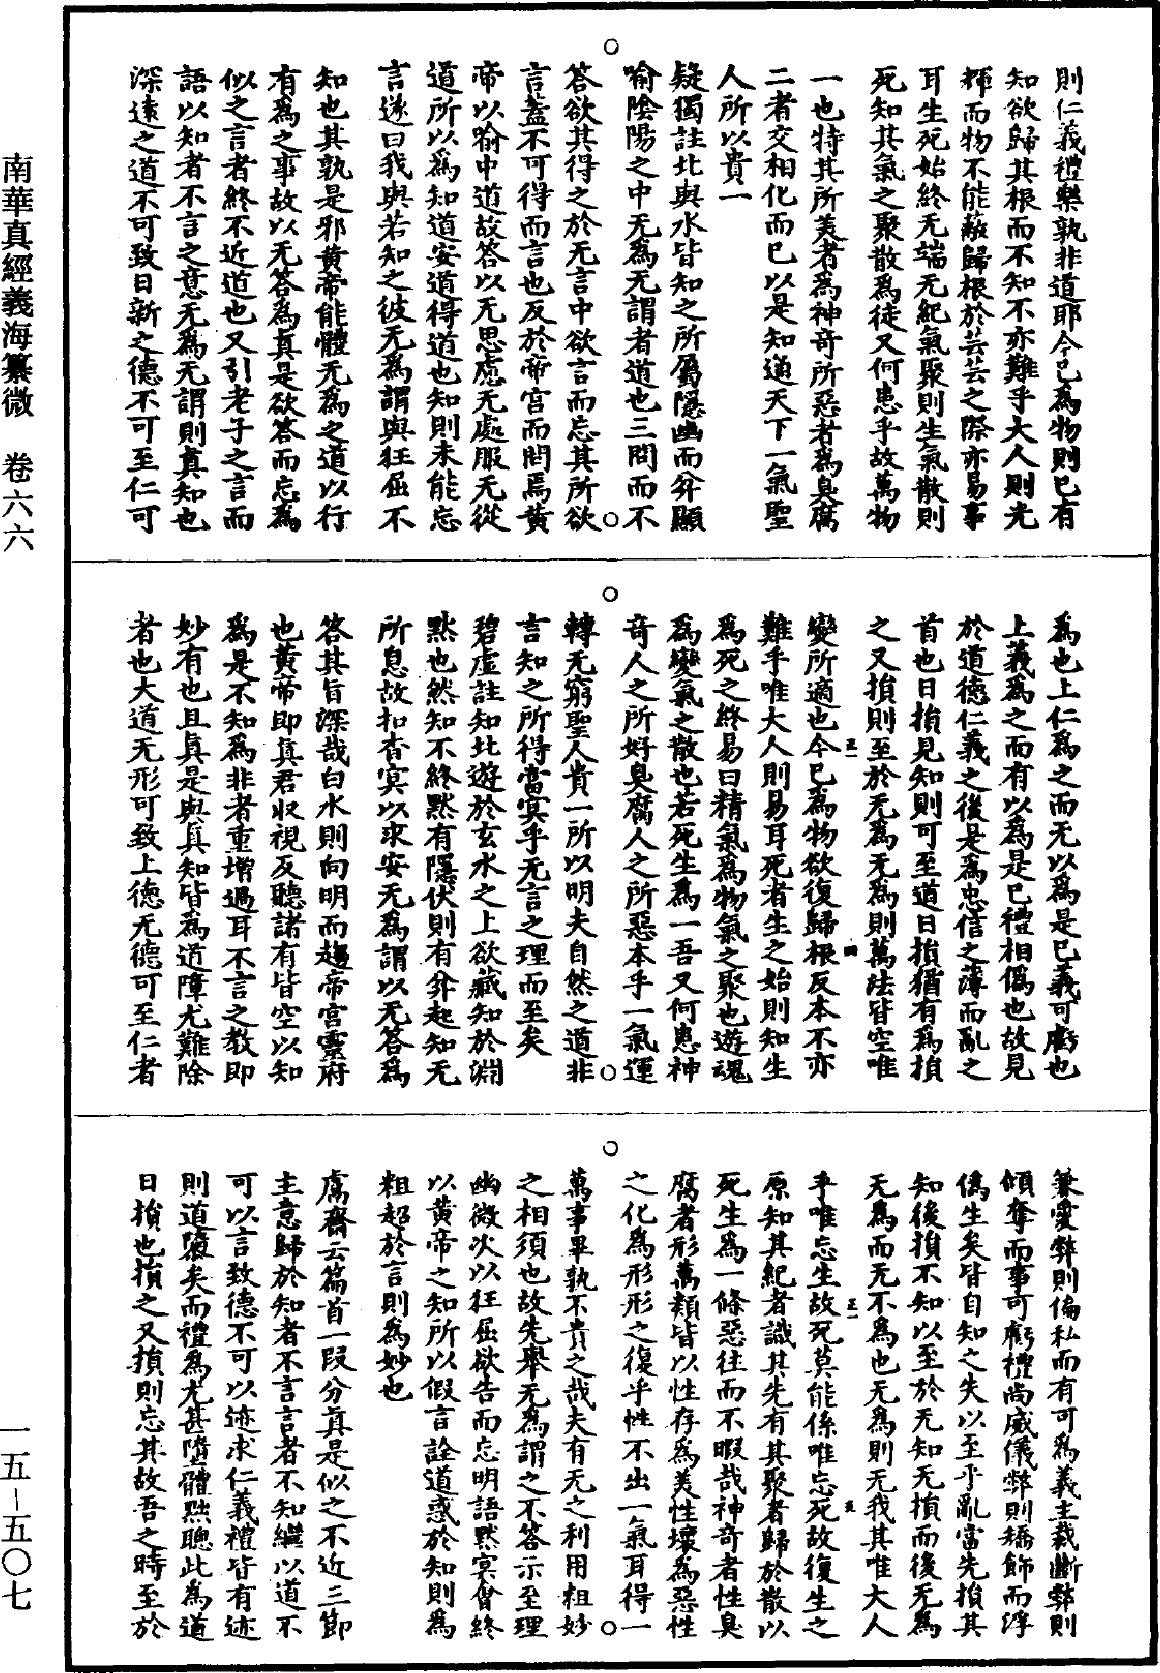 則仁義禮樂孰非道耶今已為物則已有
知欲歸其根而不知不亦難乎大人則光
輝而物不能蔽歸根於芸芸之際亦易事
耳生死始終无端无紀氣聚則生氣散則
死知其氣之聚散為徒又何患乎故萬物
一也特其所美者為神奇所惡者為臭腐
二者交相化而已以是知通天下一氣聖
人所以貴一
疑獨註北與水皆知之所屬隱幽而弅顯
喻陰陽之中无為无謂者道也三問而不
答欲其得之於无言中欲言而忘其所欲
言蓋不可得而言也反於帝宮而問焉黃
帝以喻中道故答以无思慮无處服无從
道所以為知道安道得道也知則未能忘
言遂曰我與若知之彼无為謂與狂屈不
知也其孰是邪黃帝能體无為之道以行
有為之事故以无答為真是欲答而忘為
似之言者終不近道也又引老子之言而
語以知者不言之意无為无謂則真知也
深遠之道不可致日新之德不可至仁可
為也上仁為之而无以為是已義可虧也
上義為之而有以為是已禮相偽也故見
於道德仁義之後是為忠信之薄而亂之
首也日損見知則可至道日損猶有為損
之又損則至於无為无為則萬法皆空唯
變所適也今已為物欲復歸根反本不亦
難乎唯大人則易耳死者生之始則知生
為死之終易曰精氣為物氣之聚也遊魂
為變氣之散也若死生為一吾又何患神
奇人之所好臭腐人之所惡本乎一氣運
轉无窮聖人貴一所以明夫自然之道非
言知之所得當冥乎无言之理而至矣
碧虛註知北遊於玄水之上欲藏知於淵
默也然知不終默有隱伏則有弅起知无
所息故扣杳冥以求安无為謂以无答為
答其旨深哉白水則向明而趨帝宮靈府
也黃帝即真君收視反聽諸有皆空以知
為是不知為非者重增過耳不言之教即
妙有也且真是與真知皆為道障尤難除
者也大道无形可致上德无德可至仁者
兼愛弊則偏私而有可為義主裁斷弊則
傾奪而事可虧禮尚威儀弊則矯飾而浮
偽生矣皆自知之失以至乎亂當先損其
知後損不知以至於无知无損而後无為
无為而无不為也无為則无我其唯大人
乎唯忘生故死莫能係唯忘死故復生之
原知其紀者識其先有其聚者歸於散以
死生為一條惡往而不暇哉神奇者性臭
腐者形萬類皆以性存為美性壞為惡性
之化為形形之復乎性不出一氣耳得一
萬事畢孰不貴之哉夫有无之利用粗妙
之相須也故先舉无為謂之不答示至理
幽微次以狂屈欲告而忘明語默冥會終
以黃帝之知所以假言詮道惑於知則為
粗超於言則為妙也
鬳齋云篇首一段分真是似之不近三節
主意歸於知者不言言者不知繼以道不
可以言致德不可以迹求仁義禮皆有迹
則道隳矣而禮為尤甚墮體黜聰此為道
日損也損之又損則忘其故吾之時至於
南華真經義海纂微 卷六六
一五－五〇七